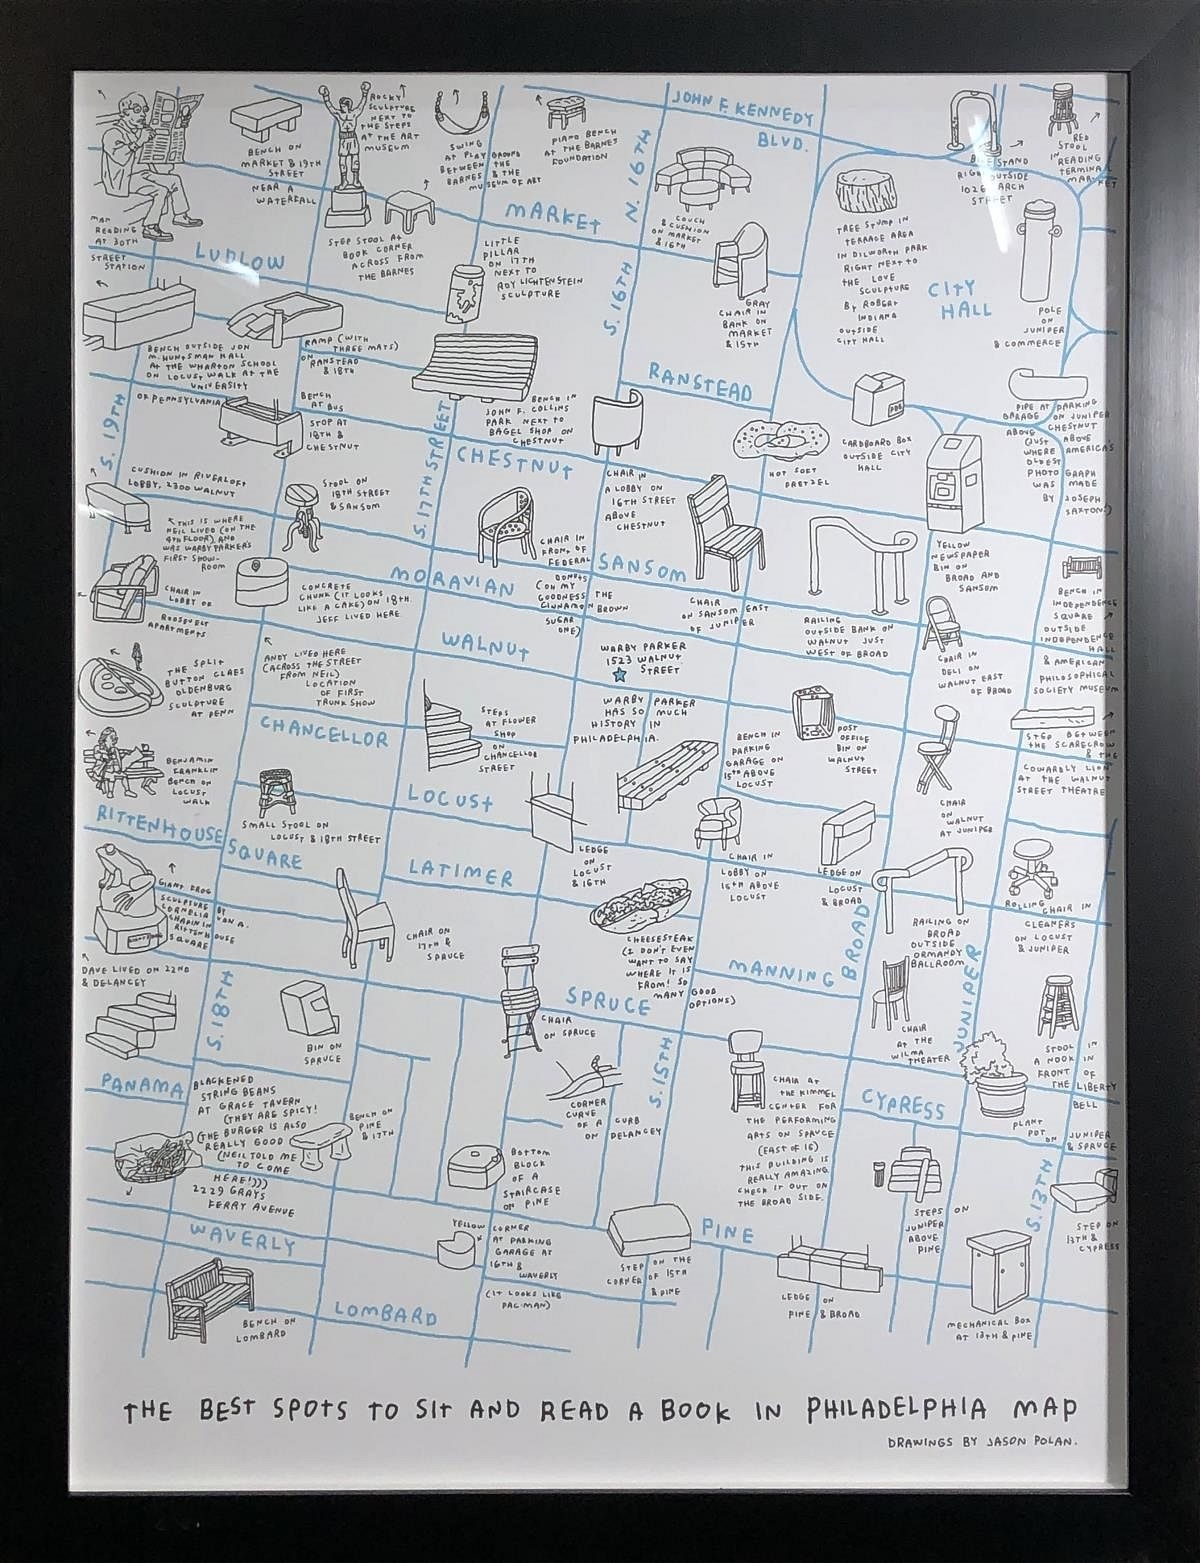 JOHN F. KENNEDY
BLVD.
N. 16TH
MARKET
LUDLOW
S. 16TH
CITY
HALL
RANSTEAD
S. 19TH
S. 17TH STREET
CHESTNUT
SANSOM
MORAVIAN
WALNUT
CHANCELLOR
LOCUST
RITTENHOUSE
SQUARE
LATIMER
MANNING
BROAD
JUNIPER
SPRUCE
S. 18TH
S. 15TH
PANAMA
CYPRESS
S. 13TH
PINE
WAVERLY
LOMBARD
MAN
READING
AT 30TH
STREET
STATION
BENCH ON
MARKET & 19TH
STREET
NEAR A
WATERFALL
ROCKY
SCULPTURE
NEXT TO
THE STEPS
AT THE ART
MUSEUM
STEP STOOL AT
BOOK CORNER
ACROSS FROM
THE BARNES
SWING
AT PLAYGROUND
BETWEEN THE
BARNES & THE
MUSEUM OF ART
PIANO BENCH
AT THE BARNES
FOUNDATION
COUCH
& CUSHION
ON MARKET
& 16TH
RIGHT OUTSIDE
STREET
RED
STOOL
IN
READING
TERMINAL
MARKET
LITTLE
PILLAR
ON 17TH
NEXT TO
ROY LICHTENSTEIN
SCULPTURE
GRAY
CHAIR IN
BANK ON
MARKET
& 15TH
TREE STUMP IN
TERRACE AREA
IN DILWORTH PARK
RIGHT NEXT TO
THE LOVE
SCULPTURE
BY ROBERT
INDIANA
OUTSIDE
CITY HALL
POLE
ON
JUNIPER
& COMMERCE
BENCH OUTSIDE JON
M. HUNTSMAN HALL
AT THE WHARTON SCHOOL
ON LOCUST WALK AT THE
UNIVERSITY
OF PENNSYLVANIA
RAMP (WITH
THREE MATS)
ON
RANSTEAD
& 18TH
BENCH
AT BUS
STOP AT
18TH &
CHESTNUT
BENCH IN
JOHN F. COLLINS
PARK NEXT TO
BAGEL SHOP ON
CHESTNUT
CHAIR IN
A LOBBY ON
16TH STREET
ABOVE
CHESTNUT
HOT SOFT
PRETZEL
CARDBOARD BOX
OUTSIDE CITY
HALL
PIPE AT PARKING
GARAGE ON JUNIPER
ABOVE CHESTNUT
(JUST ABOVE
WHERE AMERICA'S
OLDEST
PHOTOGRAPH
WAS MADE
BY JOSEPH
SAXTON)
CUSHION IN RIVERLOFT
LOBBY, 2300 WALNUT
THIS IS WHERE
NEIL LIVED (ON THE
4TH FLOOR) AND
WAS WARBY PARKER'S
FIRST SHOW-
ROOM
STOOL ON
18TH STREET
& SANSOM
CHAIR IN
FRONT OF
FEDERAL
DONUTS
(OH MY
GOODNESS THE
CINNAMON BROWN
SUGAR
ONE)
CHAIR
ON SANSOM EAST
OF JUNIPER
RAILING
OUTSIDE BANK ON
WALNUT JUST
WEST OF BROAD
YELLOW
NEWSPAPER
BIN ON
BROAD AND
SANSOM
BENCH IN
INDEPENDENCE
SQUARE
OUTSIDE
INDEPENDENCE
HALL
& AMERICAN
PHILOSOPHICAL
SOCIETY MUSEUM
CHAIR IN
LOBBY OF
ROOSEVELT
APARTMENTS
CONCRETE
CHUNK (IT LOOKS
LIKE A CAKE) ON 18TH.
JEFF LIVED HERE
ANDY LIVED HERE
(ACROSS THE STREET
FROM NEIL)
LOCATION
OF FIRST
TRUNK SHOW
THE SPLIT
BUTTON CLAES
OLDENBURG
SCULPTURE
AT PENN
WARBY PARKER
1523 WALNUT
STREET
WARBY PARKER
HAS SO MUCH
HISTORY IN
PHILADELPHIA.
CHAIR IN
DELI ON
WALNUT EAST
OF BROAD
STEPS
AT FLOWER
SHOP
ON
CHANCELLOR
STREET
BENCH IN
PARKING
GARAGE ON
15TH ABOVE
LOCUST
POST
OFFICE
BIN ON
WALNUT
STREET
STEP BETWEEN
THE SCARECROW
& THE
COWARDLY LION
AT THE WALNUT
STREET THEATRE
BENJAMIN
FRANKLIN
BENCH ON
LOCUST
WALK
SMALL STOOL ON
LOCUST & 18TH STREET
LEDGE
ON
LOCUST
& 16TH
CHAIR IN
LOBBY ON
15TH ABOVE
LOCUST
LEDGE ON
LOCUST
& BROAD
CHAIR
ON
WALNUT
AT JUNIPER
GIANT FROG
SCULPTURE BY
CORNELIA VAN A.
CHAPIN IN
RITTENHOUSE
SQUARE
CHAIR ON
17TH &
SPRUCE
CHEESESTEAK
(I DON'T EVEN
WANT TO SAY
WHERE IT IS
FROM! SO
MANY GOOD
OPTIONS)
RAILING ON
BROAD
OUTSIDE
ORMANDY
BALLROOM
ROLLING CHAIR IN
CLEANERS
ON LOCUST
& JUNIPER
DAVE LIVED ON 22ND
& DELANCEY
BIN ON
SPRUCE
CHAIR
ON SPRUCE
CHAIR
AT THE
WILMA
THEATER
STOOL IN
A NOOK IN
FRONT OF
THE LIBERTY
BELL
BLACKENED
STRING BEANS
AT GRACE TAVERN
(THEY ARE SPICY!
(THE BURGER IS ALSO
REALLY GOOD
(NEIL TOLD ME
TO COME
HERE!)))
2229 GRAYS
FERRY AVENUE
BENCH ON
PINE
& 17TH
CORNER
CURVE
OF A CURB
ON DELANCEY
CHAIR AT
THE KIMMEL
CENTER FOR
THE PERFORMING
ARTS ON SPRUCE
(EAST OF 15)
THIS BUILDING IS
REALLY AMAZING.
CHECK IT OUT ON
THE BROAD SIDE.
PLANT
POT ON JUNIPER
& SPRUCE
BOTTOM
BLOCK
OF A
STAIRCASE
ON PINE
STEPS ON
JUNIPER
ABOVE
PINE
STEP ON
13TH &
CYPRESS
YELLOW CORNER
AT PARKING
GARAGE AT
16TH &
WAVERLY
(IT LOOKS LIKE
PAC-MAN)
STEP ON THE
CORNER OF 15TH
& PINE
LEDGE ON
PINE & BROAD
MECHANICAL BOX
AT 13TH & PINE
BENCH ON
LOMBARD
THE BEST SPOTS TO SIT AND READ A BOOK IN PHILADELPHIA MAP
DRAWINGS BY JASON POLAN.